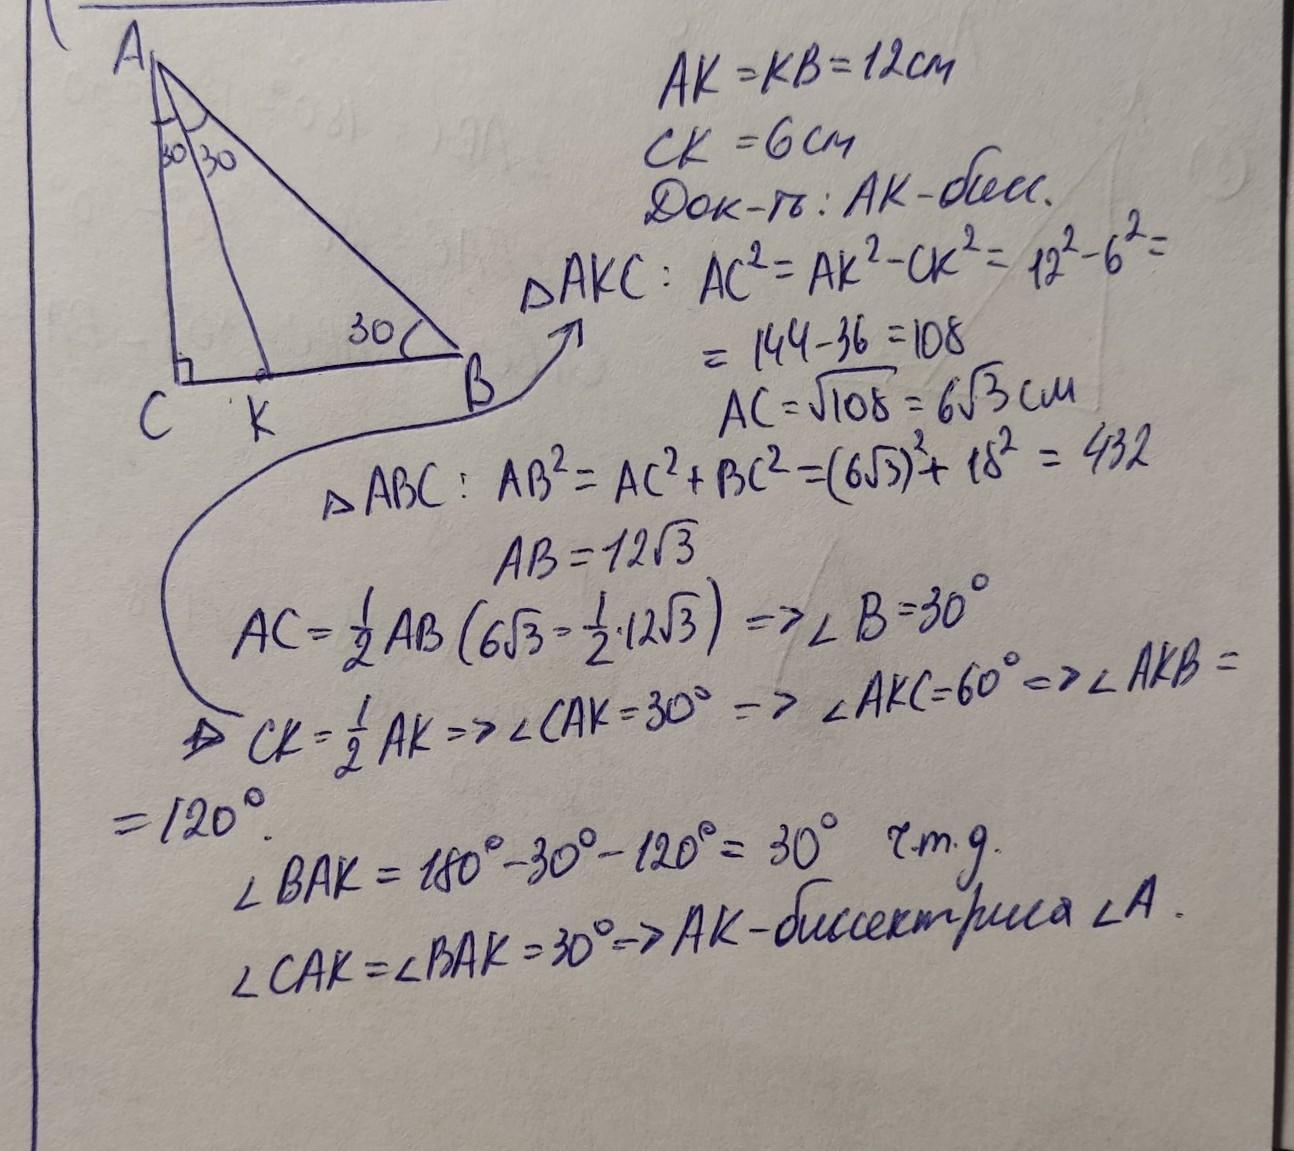 A
30 30
30
C K B
AK = KB = 12см
CK = 6см
Док-ть: AK - бисс.
△AKC: AC² = AK² - CK² = 12² - 6² =
= 144 - 36 = 108
AC = √108 = 6√3 см
△ABC: AB² = AC² + BC² = (6√3)² + 18² = 432
AB = 12√3
AC = 1/2 AB (6√3 = 1/2 · 12√3) => ∠B = 30°
CK = 1/2 AK => ∠CAK = 30° => ∠AKC = 60° => ∠AKB =
= 120°.
∠BAK = 180° - 30° - 120° = 30° ч.т.д.
∠CAK = ∠BAK = 30° => AK - биссектриса ∠A.